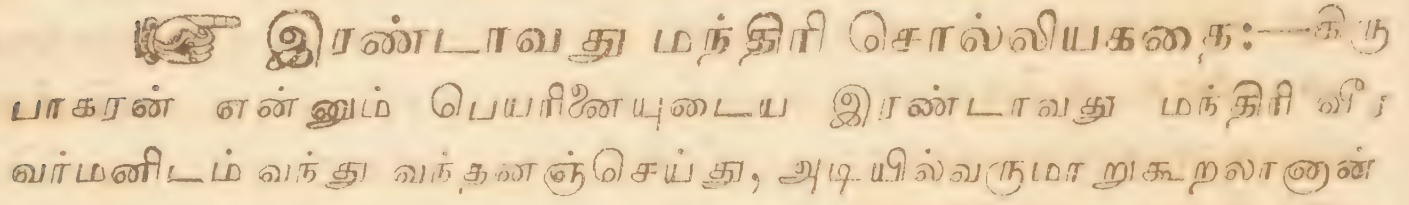 ☞ இரண்டாவது மந்திரி சொல்லியகதை:—கிரு
பாகரன் என்னும் பெயரினையுடைய இரண்டாவது மந்திரி வீர
வர்மனிடம் வந்து வந்தனஞ்செய்து, அடியில்வருமாறுகூறலானான்